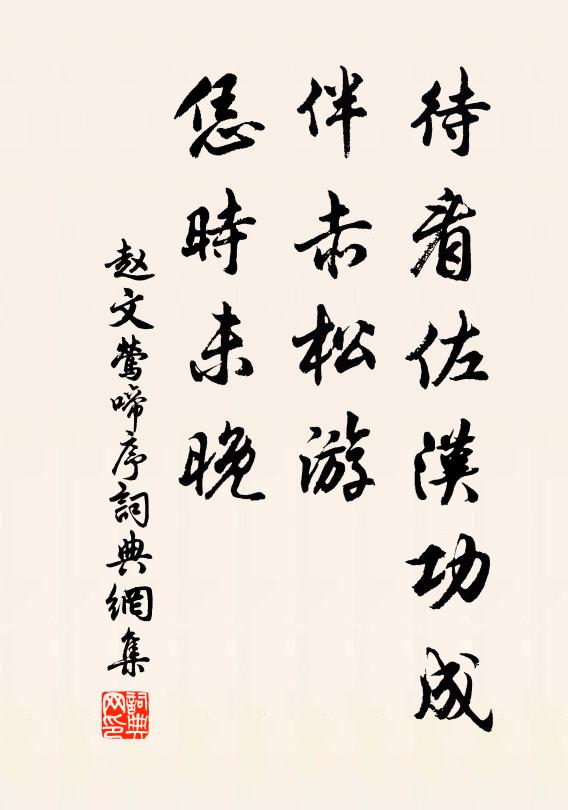 待看佐漢功成
伴赤松游
恁時未晚
赵文鶯啼序詞典網集
詞典网印